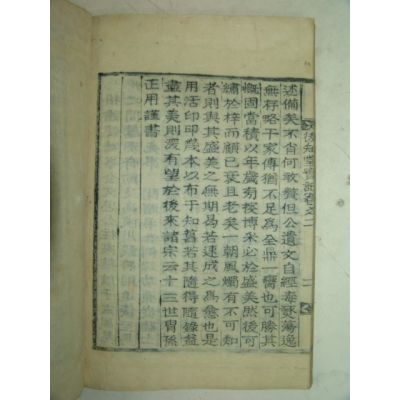 後知堂實記卷之二
述備矣不肖何敢贅但公遺文自經毒燹蕩逸
無存略于家傳猶不足爲全鼎一臠也可勝其
慨固當積以年歲旁搜博采必於盛美然後可
繡於梓而顧已衰且老矣一朝風燭有不可知
者則與其盛美之無期曷若速成之爲愈也是
用活印印幾本以布于知舊若其隨得隨錄益
盡其美則深有望於後來諸宗云十三世胄孫
正用謹書